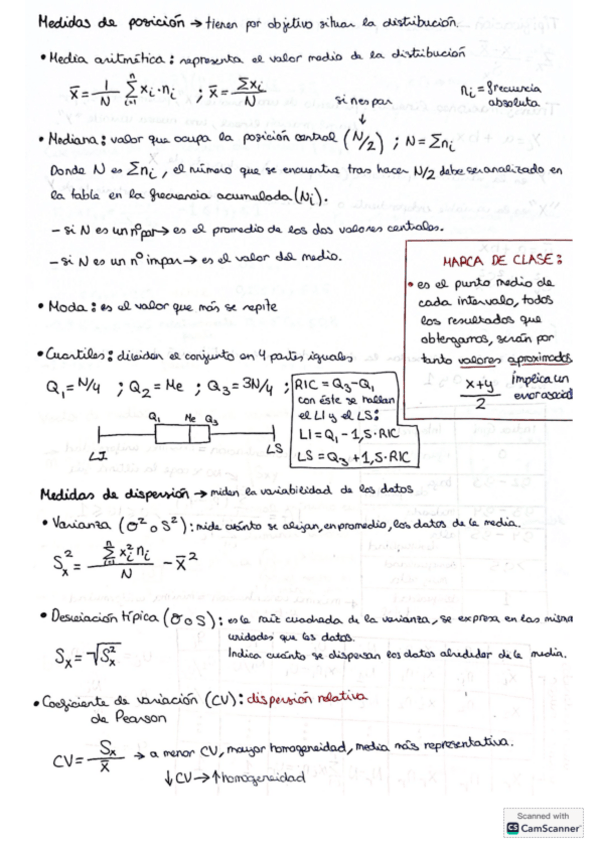 Medidas de posición → tienen por objetivo situar la distribución.
• Media aritmética: representa el valor medio de la distribución
x̄ = 1/N Σ(i=1, n) xi · ni ; x̄ = Σxi/N
ni = frecuencia absoluta
si n es par
↓
• Mediana: valor que ocupa la posición central (N/2) ; N = Σni
Donde N es Σni, el número que se encuentra tras hacer N/2 debe ser analizado en
la table en la frecuencia acumulada (Ni).
- si N es un nº par → es el promedio de los dos valores centrales.
- si N es un nº impar → es el valor del medio.
MARCA DE CLASE:
• es el punto medio de
cada intervalo, todos
los resultados que
obtengamos, serán por
tanto valores aproximados
x+y/2
implica un
error asociad
• Moda: es el valor que más se repite
• Cuartiles: dividen el conjunto en 4 partes iguales
Q1 = N/4 ; Q2 = Me ; Q3 = 3N/4 ;
RIC = Q3 - Q1
con éste se hallan
el LI y el LS:
LI = Q1 - 1,5 · RIC
LS = Q3 + 1,5 · RIC
Q1 Me Q3
LI LS
Medidas de dispersión → miden la variabilidad de los datos
• Varianza (σ² o S²): mide cuánto se alejan, en promedio, los datos de la media.
Sx² = Σ(i=1, n) xi² ni / N - x̄²
• Desviación típica (σ o S): es la raíz cuadrada de la varianza, se expresa en las misma
unidades que los datos.
Indica cuánto se dispersan los datos alrededor de la media.
Sx = √Sx²
• Coeficiente de variación (CV): dispersión relativa
de Pearson
CV = Sx/x̄ → a menor CV, mayor homogeneidad, media más representativa.
↓CV → ↑homogeneidad
Scanned with
CS CamScanner